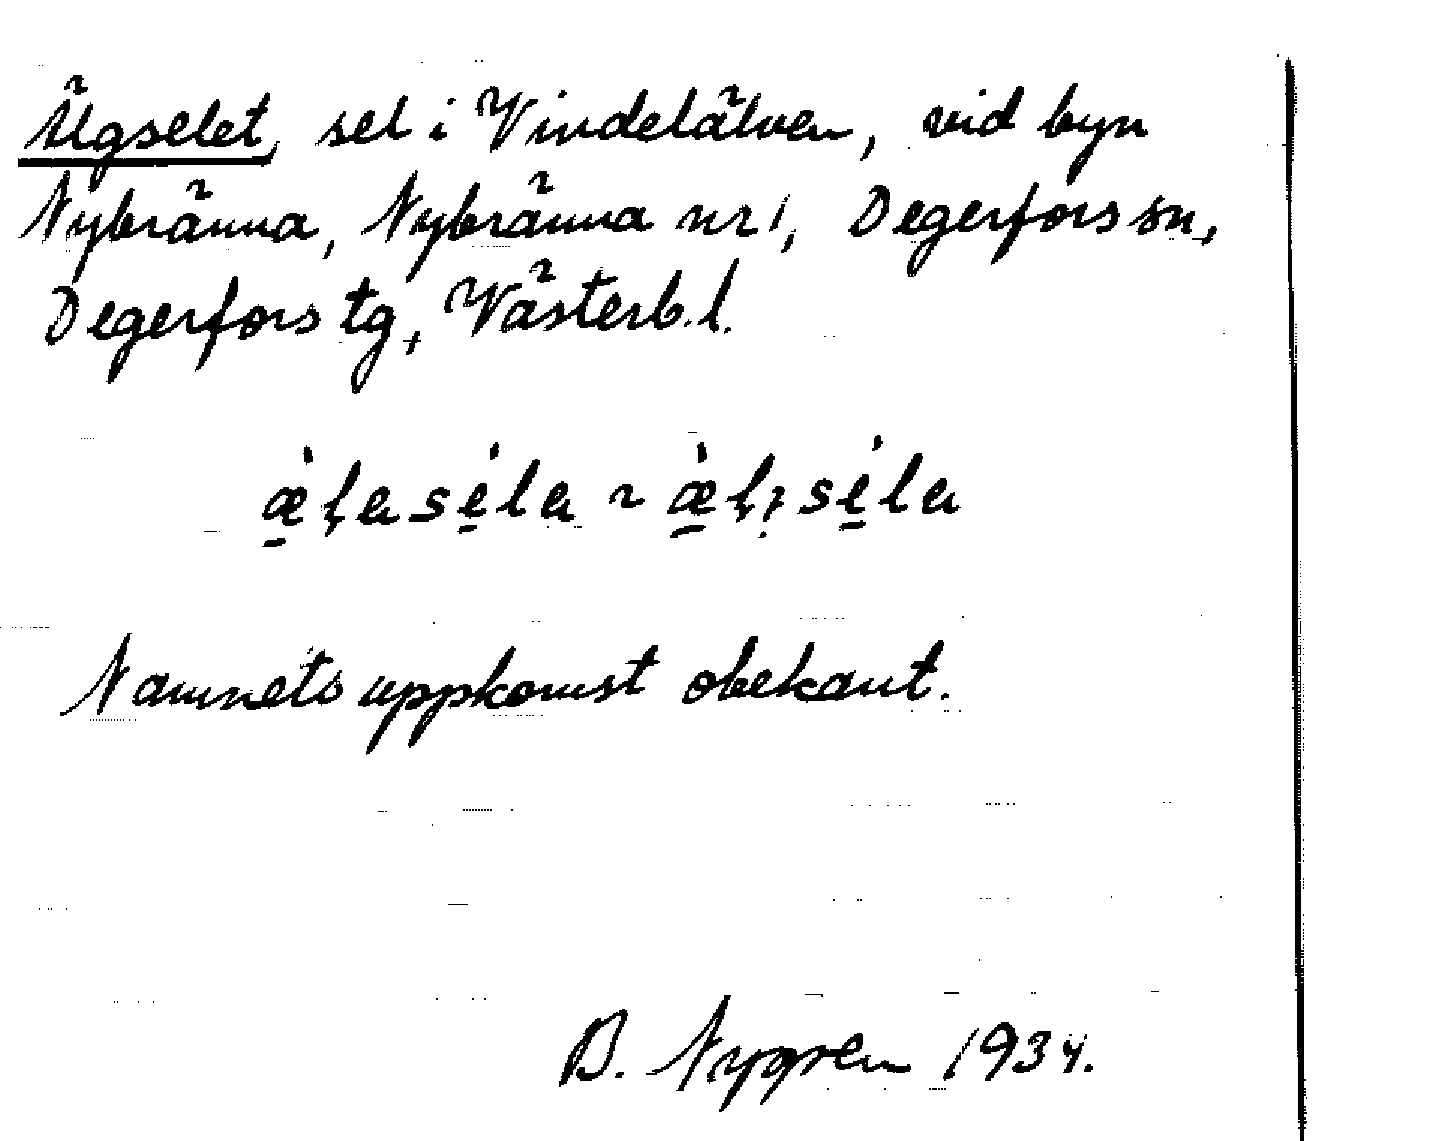 Älgselet, sel i Vindelälven, vid byn
Nybränna, Nybränna nr 1, Degerfors sn,
Degerfors tg, Västerb. l.
Namnets uppkomst obekant.
B. Nygren 1934.